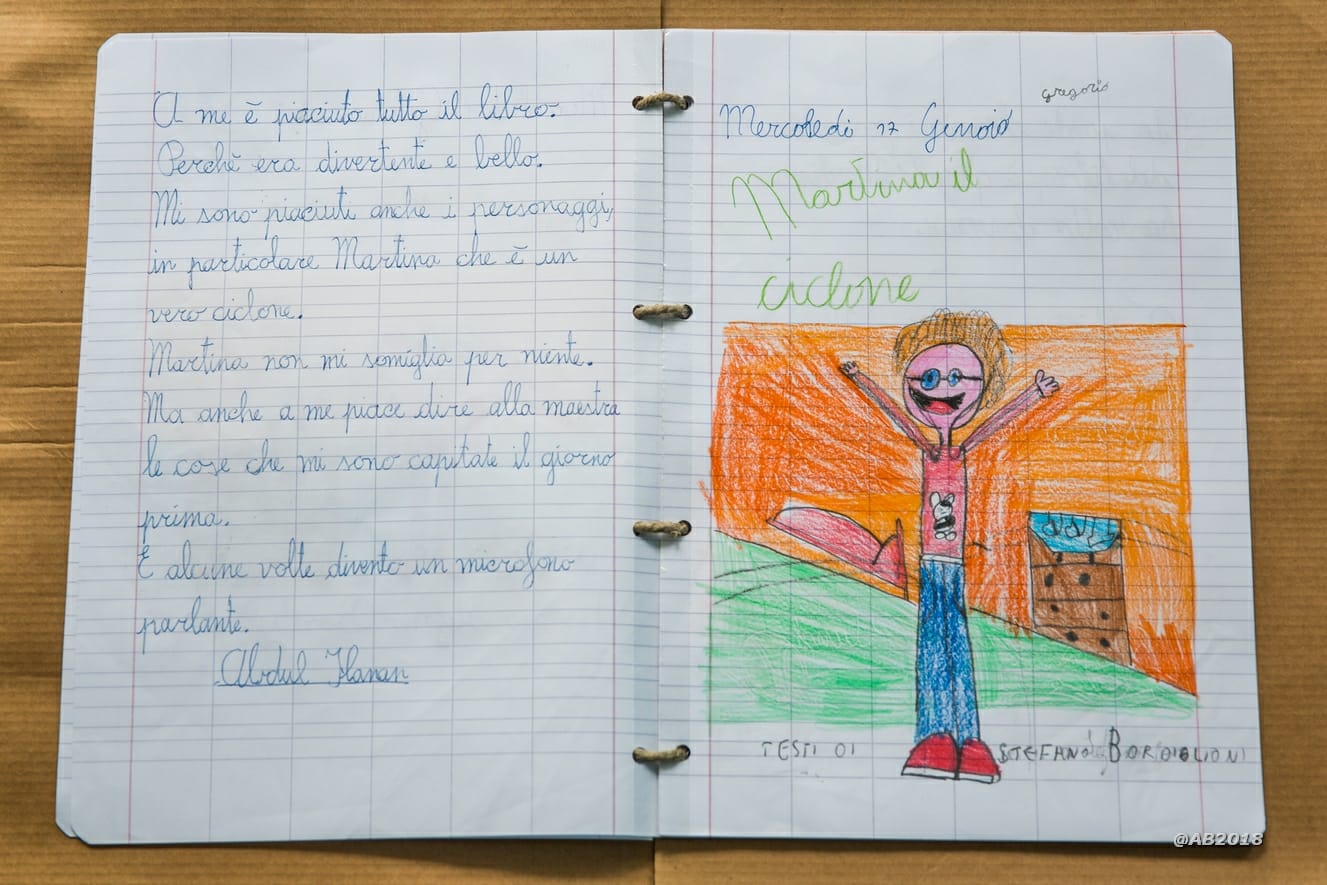 A me è piaciuto tutto il libro.
Perchè era divertente e bello.
Mi sono piaciuti anche i personaggi,
in particolare Martina che è un
vero ciclone.
Martina non mi somiglia per niente.
Ma anche a me piace dire alla maestra
le cose che mi sono capitate il giorno
prima.
E alcune volte divento un microfono
parlante.
Abdul Hanan
gregorio
Mercoledì 17
Martina il
ciclone
TESTI DI STEFANO BORDIGLIONI
@AB2018